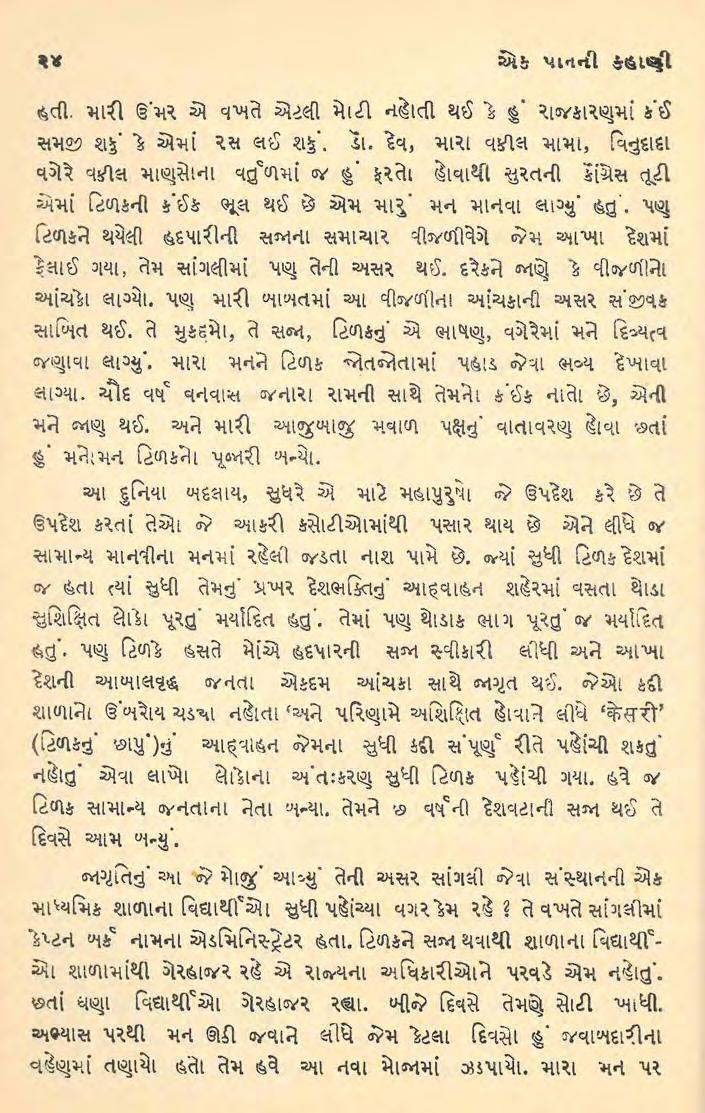 ૨૪ એક પાનની કહાણી
હતી. મારી ઉંમર એ વખતે એટલી મોટી નહોતી થઈ કે હું રાજકારણમાં કંઈ
સમજી શકું કે એમાં રસ લઈ શકું. ડૉ. દેવ, મારા વકીલ મામા, વિનુદાદા
વગેરે વકીલ માણસોના વર્તુળમાં જ હું ફરતો હોવાથી સુરતની કૉંગ્રેસ તૂટી
એમાં ટિળકની કંઈક ભૂલ થઈ છે એમ મારું મન માનવા લાગ્યું હતું. પણ
ટિળકને થયેલી હદપારીની સજાના સમાચાર વીજળીવેગે જેમ આખા દેશમાં
ફેલાઈ ગયા, તેમ સાંગલીમાં પણ તેની અસર થઈ. દરેકને જાણે કે વીજળીનો
આંચકો લાગ્યો. પણ મારી બાબતમાં આ વીજળીના આંચકાની અસર સંજીવક
સાબિત થઈ. તે મુકદ્દમો, તે સજા, ટિળકનું એ ભાષણ, વગેરેમાં મને દિવ્યત્વ
જણાવા લાગ્યું. મારા મનને ટિળક જોતજોતામાં પહાડ જેવા ભવ્ય દેખાવા
લાગ્યા. ચૌદ વર્ષ વનવાસ જનારા રામની સાથે તેમનો કંઈક નાતો છે, એની
મને જાણ થઈ. અને મારી આજુબાજુ મવાળ પક્ષનું વાતાવરણ હોવા છતાં
હું મનોમન ટિળકનો પૂજારી બન્યો.
આ દુનિયા બદલાય, સુધરે એ માટે મહાપુરુષો જે ઉપદેશ કરે છે તે
ઉપદેશ કરતાં તેઓ જે આકરી કસોટીઓમાંથી પસાર થાય છે એને લીધે જ
સામાન્ય માનવીના મનમાં રહેલી જડતા નાશ પામે છે. જ્યાં સુધી ટિળક દેશમાં
જ હતા ત્યાં સુધી તેમનું પ્રખર દેશભક્તિનું આહ્‌વાહન શહેરમાં વસતા થોડા
સુશિક્ષિત લોકો પૂરતું મર્યાદિત હતું. તેમાં પણ થોડાક ભાગ પૂરતું જ મર્યાદિત
હતું. પણ ટિળકે હસતે મોંએ હદપારની સજા સ્વીકારી લીધી અને આખા
દેશની આબાલવૃદ્ધ જનતા એકદમ આંચકા સાથે જાગૃત થઈ. જેઓ કદી
શાળાનો ઉંબરોય ચડ્યા નહોતા ‘અને પરિણામે અશિક્ષિત હોવાને લીધે ‘केसरी’
(ટિળકનું છાપું)નું આહ્‌વાહન જેમના સુધી કદી સંપૂર્ણ રીતે પહોંચી શકતું
નહોતું એવા લાખો લોકોના અંતઃકરણ સુધી ટિળક પહોંચી ગયા. હવે જ
ટિળક સામાન્ય જનતાના નેતા બન્યા. તેમને છ વર્ષની દેશવટાની સજા થઈ તે
દિવસે આમ બન્યું.
જાગૃતિનું આ જે મોજું આવ્યું તેની અસર સાંગલી જેવા સંસ્થાનની એક
માધ્યમિક શાળાના વિદ્યાર્થીઓ સુધી પહોંચ્યા વગર કેમ રહે ? તે વખતે સાંગલીમાં
કેપ્ટન બર્ક નામના એડમિનિસ્ટ્રેટર હતા. ટિળકને સજા થવાથી શાળાના વિદ્યાર્થી-
ઓ શાળામાંથી ગેરહાજર રહે એ રાજ્યના અધિકારીઓને પરવડે એમ નહોતું.
છતાં ઘણા વિદ્યાર્થીઓ ગેરહાજર રહ્યા. બીજે દિવસે તેમણે સોટી ખાધી.
અભ્યાસ પરથી મન ઊડી જવાને લીધે જેમ કેટલા દિવસો હું જવાબદારીના
વહેણમાં તણાયો હતો તેમ હવે આ નવા મોજામાં ઝડપાયો. મારા મન પર